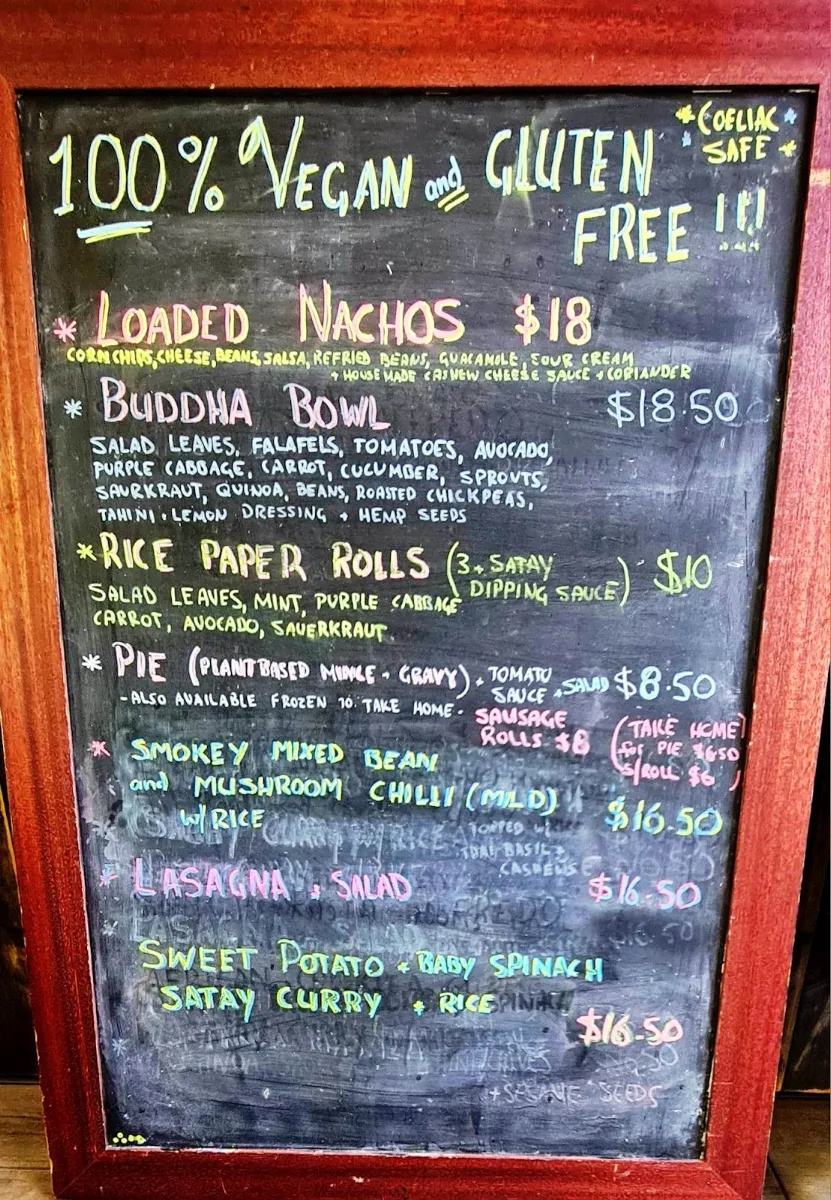 *COELIAC*
*SAFE*
100% VEGAN and GLUTEN
FREE !!!
* LOADED NACHOS $18
CORN CHIPS, CHEESE, BEANS, SALSA, REFRIED BEANS, GUACAMOLE, SOUR CREAM
+ HOUSE MADE CASHEW CHEESE SAUCE + CORIANDER
* BUDDHA BOWL $18.50
SALAD LEAVES, FALAFELS, TOMATOES, AVOCADO,
PURPLE CABBAGE, CARROT, CUCUMBER, SPROUTS,
SAURKRAUT, QUINOA, BEANS, ROASTED CHICKPEAS,
TAHINI + LEMON DRESSING + HEMP SEEDS
* RICE PAPER ROLLS (3 + SATAY DIPPING SAUCE) $10
SALAD LEAVES, MINT, PURPLE CABBAGE
CARROT, AVOCADO, SAUERKRAUT.
* PIE (PLANT BASED MINCE + GRAVY) + TOMATO
SAUCE + SALAD $8.50
- ALSO AVAILABLE FROZEN TO TAKE HOME -
SAUSAGE
ROLLS $8
(TAKE HOME
for PIE $6.50
S/ROLL $6)
* SMOKEY MIXED BEAN
and MUSHROOM CHILLI (MILD)
w/ RICE $16.50
TOPPED
THAI BASIL +
CASHEWS
* LASAGNA + SALAD $16.50
SWEET POTATO + BABY SPINACH
SATAY CURRY + RICE
$16.50
+ SESAME SEEDS